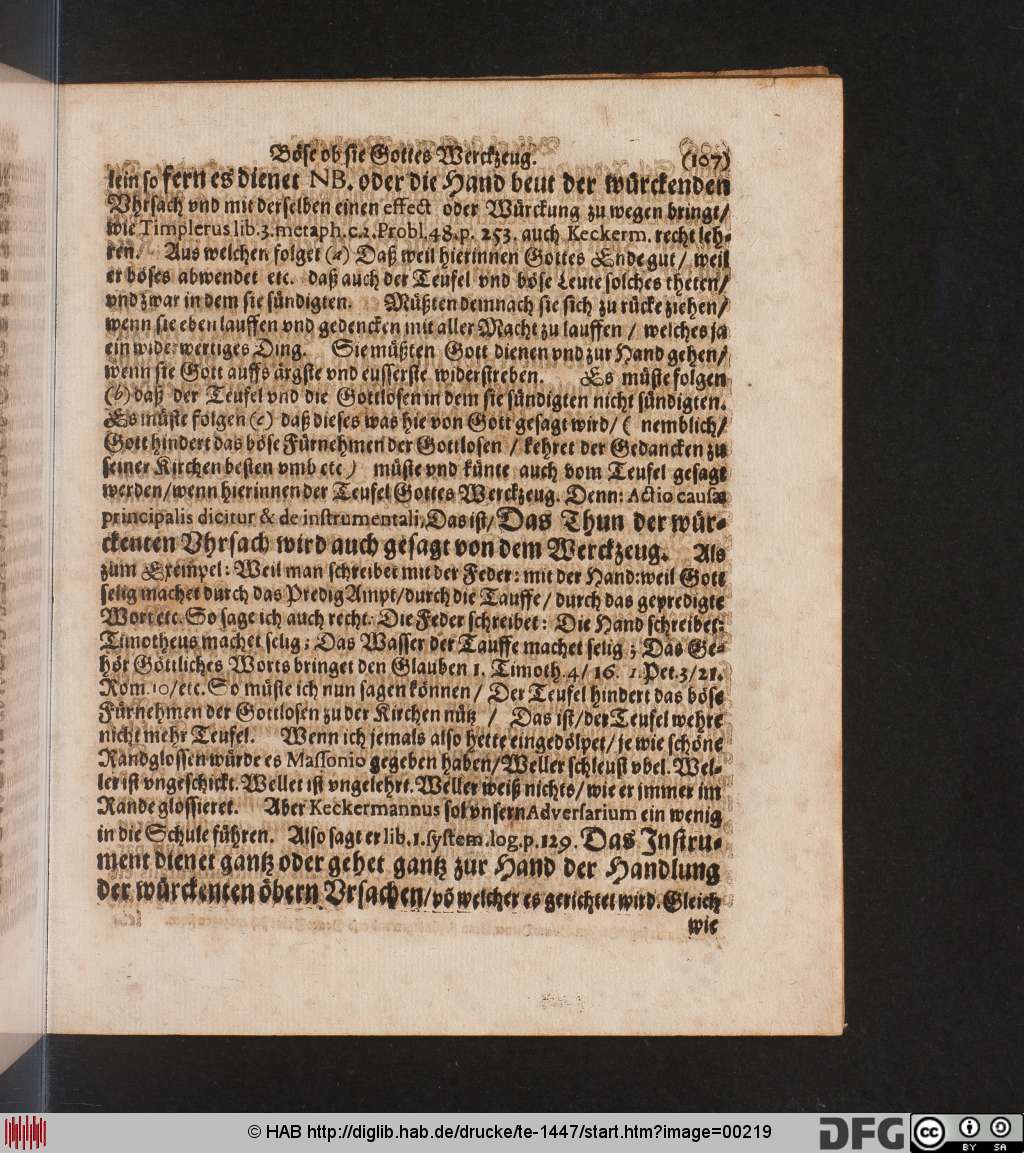 Böse ob sie Gottes Werckzeug. (107)
lein so fern es dienet NB. oder die Hand beut der würckenden
Vhrsach vnd mit derselben einen effect oder Würckung zu wegen bringt/
wie Timplerus lib.3.metaph.c.2.Probl.48.p. 253. auch Keckerm. recht leh-
ren. Aus welchen folget (a) Daß weil hierinnen Gottes Ende gut / weil
er böses abwendet etc. daß auch der Teufel vnd böse Leute solches theten/
vnd zwar in dem sie sündigten. Müßten demnach sie sich zu rücke ziehen/
wenn sie eben lauffen vnd gedencken mit aller Macht zu lauffen / welches ja
ein widerwertiges Ding. Sie müßten Gott dienen vnd zur Hand gehen/
wenn sie Gott auffs ärgste vnd eusserste widerstreben. Es müste folgen
(b) daß der Teufel vnd die Gottlosen in dem sie sündigten nicht sündigten.
Es müste folgen (c) daß dieses was hie von Gott gesagt wird/ ( nemblich/
Gott hindert das böse Fürnehmen der Gottlosen / kehret der Gedancken zu
seiner Kirchen besten vmb etc ) müste vnd künte auch vom Teufel gesagt
werden/wenn hierinnen der Teufel Gottes Werckzeug. Denn: Actio causæ
principalis dicitur & de instrumentali, Das ist/ Das Thun der wür-
ckenten Vhrsach wird auch gesagt von dem Werckzeug. Als
zum Exempel: Weil man schreibet mit der Feder: mit der Hand: weil Gott
selig machet durch das Predig Ampt/durch die Tauffe / durch das gepredigte
Wort etc. So sage ich auch recht. Die Feder schreibet: Die Hand schreibet:
Timotheus machet selig; Das Wasser der Tauffe machet selig ; Das Ge-
hör Göttliches Worts bringet den Glauben 1. Timoth.4/ 16. 1.Pet.3/21.
Rom.10/etc. So müste ich nun sagen können / Der Teufel hindert das böse
Fürnehmen der Gottlosen zu der Kirchen nütz / Das ist/der Teufel wehre
nicht mehr Teufel. Wenn ich jemals also hette eingedölpet/ je wie schöne
Randglossen würde es Massonio gegeben haben/Weller schleust vbel. Wel-
ler ist vngeschickt. Weller ist vngelehrt. Weller weiß nichts/ wie er jmmer im
Rande glossieret. Aber Keckermannus sol vnsern Adversarium ein wenig
in die Schule führen. Also sagt er lib.1.system.log.p.129. Das Instru-
ment dienet gantz oder gehet gantz zur Hand der Handlung
der würckenten öbern Vrsachen/võ welcher es gerichtet wird. Gleich
wie
© HAB http://diglib.hab.de/drucke/te-1447/start.htm?image=00219
DFG
cc BY SA